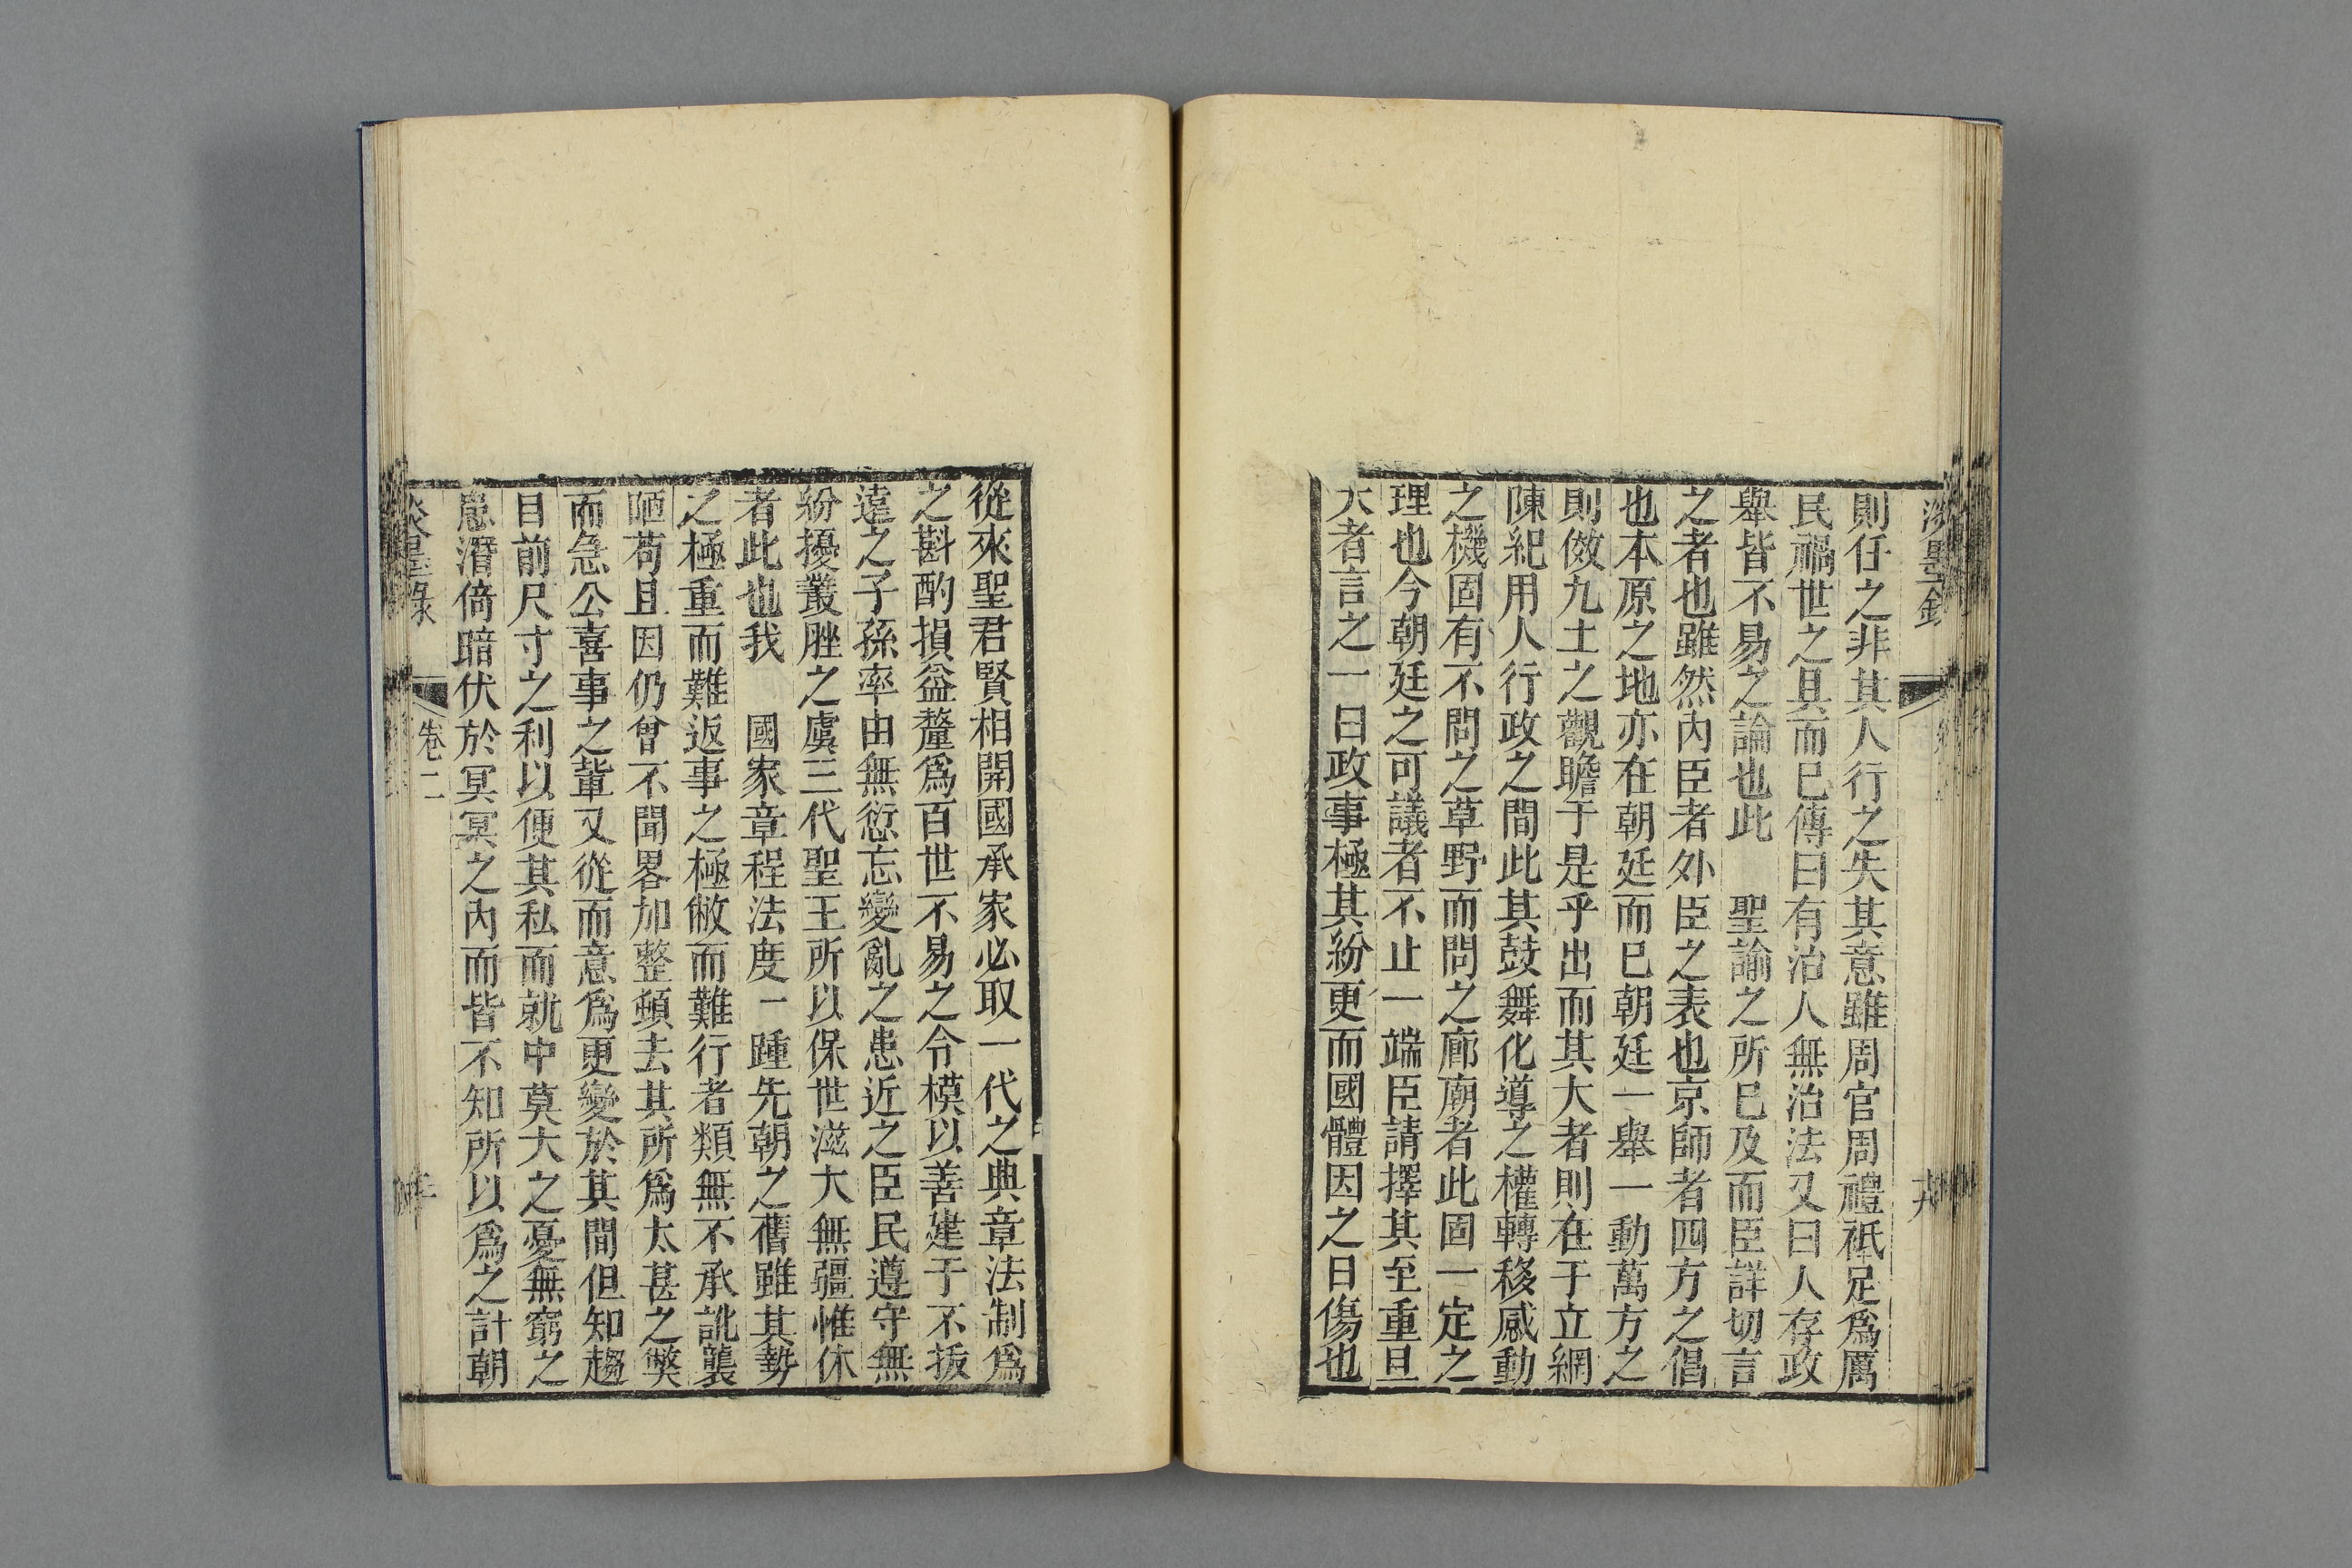 則任之非其人行之失其意雖周官周禮祗足爲厲
民禍世之具而已傳曰有治人無治法又曰人存政
舉皆不易之論也此 聖諭之所已及而臣詳切言
之者也雖然內臣者外臣之表也京師者四方之倡
也本原之地亦在朝廷而已朝廷一舉一動萬方之
則傚九土之觀瞻于是乎出而其大者則在于立綱
陳紀用人行政之間此其鼓舞化導之權轉移感動
之機固有不問之草野而問之廊廟者此固一定之
理也今朝廷之可議者不止一端臣請擇其至重且
大者言之一曰政事極其紛更而國體因之日傷也
從來聖君賢相開國承家必取一代之典章法制爲
之斟酌損益釐爲百世不易之令模以善建于不拔
遠之子孫率由無愆忘變亂之患近之臣民遵守無
紛擾叢脞之虞三代聖王所以保世滋大無疆惟休
者此也我 國家章程法度一踵先朝之舊雖其勢
之極重而難返事之極敝而難行者類無不承訛襲
陋苟且因仍曾不聞畧加整頓去其所爲太甚之獘
而急公喜事之輩又從而意爲更變於其間但知趨
目前尺寸之利以便其私而就中莫大之憂無窮之
患潛倚暗伏於冥冥之內而皆不知所以爲之計朝
卷二